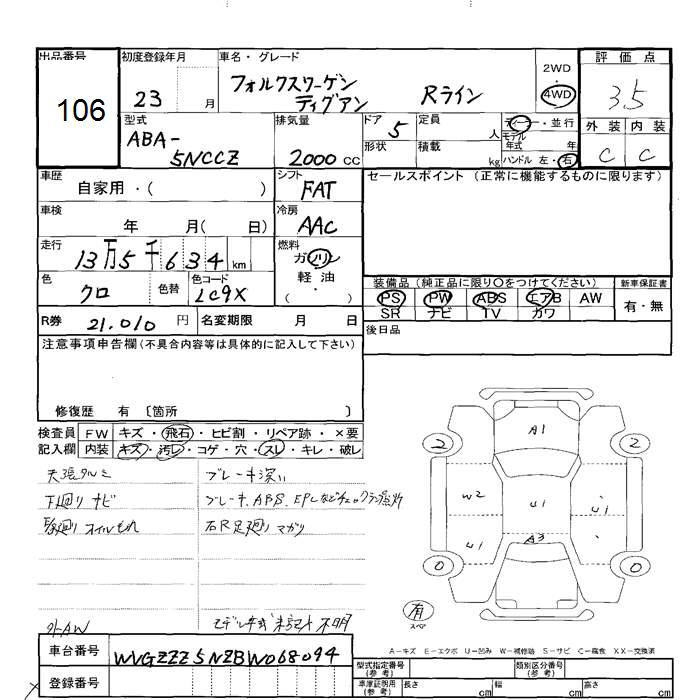 出品番号 初度登録年月 車名・グレード 評価点
106
23 月
フォルクスワーゲン ティグアン Rライン
2WD 4WD
3.5
型式 排気量 ドア 5 定員 人 ディーラー・並行
ABA-5NCCZ 2000cc
モデル年式 年
形状 積載 kg ハンドル 左・右
外装 内装
C C
車歴 自家用・( )
シフト FAT
セールスポイント (正常に機能するものに限ります)
車検 年 月( 日)
冷房 AAC
走行 13万5千634km
燃料 ガソリン 軽油・( )
色 クロ 色替 色コード LC9X
装備品 (純正品に限り○をつけてください) 新車保証書
PS PW ABS エアB AW 有・無
SR ナビ TV カワ
R券 21,010 円 名変期限 月 日
後日品
注意事項申告欄(不具合内容等は具体的に記入して下さい)
修復歴 有 〔箇所 〕
検査員 FW キズ・飛石・ヒビ割・リペア跡・×要
記入欄 内装 キズ・汚レ・コゲ・穴・スレ・キレ・破レ
天張タルミ ブレーキ深い
下廻りサビ ブレーキ、ABS、EPCなどチェックランプ点灯
オイルもれ 右R足廻りマガリ
外AW モデル年式 未記入 不明
A1
2 2
W2 U1 U1
U1 A3
0 0
有
スペア
A-キズ E-エクボ U-凹み W-補修跡 S-サビ C-腐食 XX-交換済
車台番号 WVGZZZ5NZBW068094
登録番号
型式指定番号(参考) 類別区分番号(参考)
車庫証明用(参考) 長さ cm 幅 cm 高さ cm